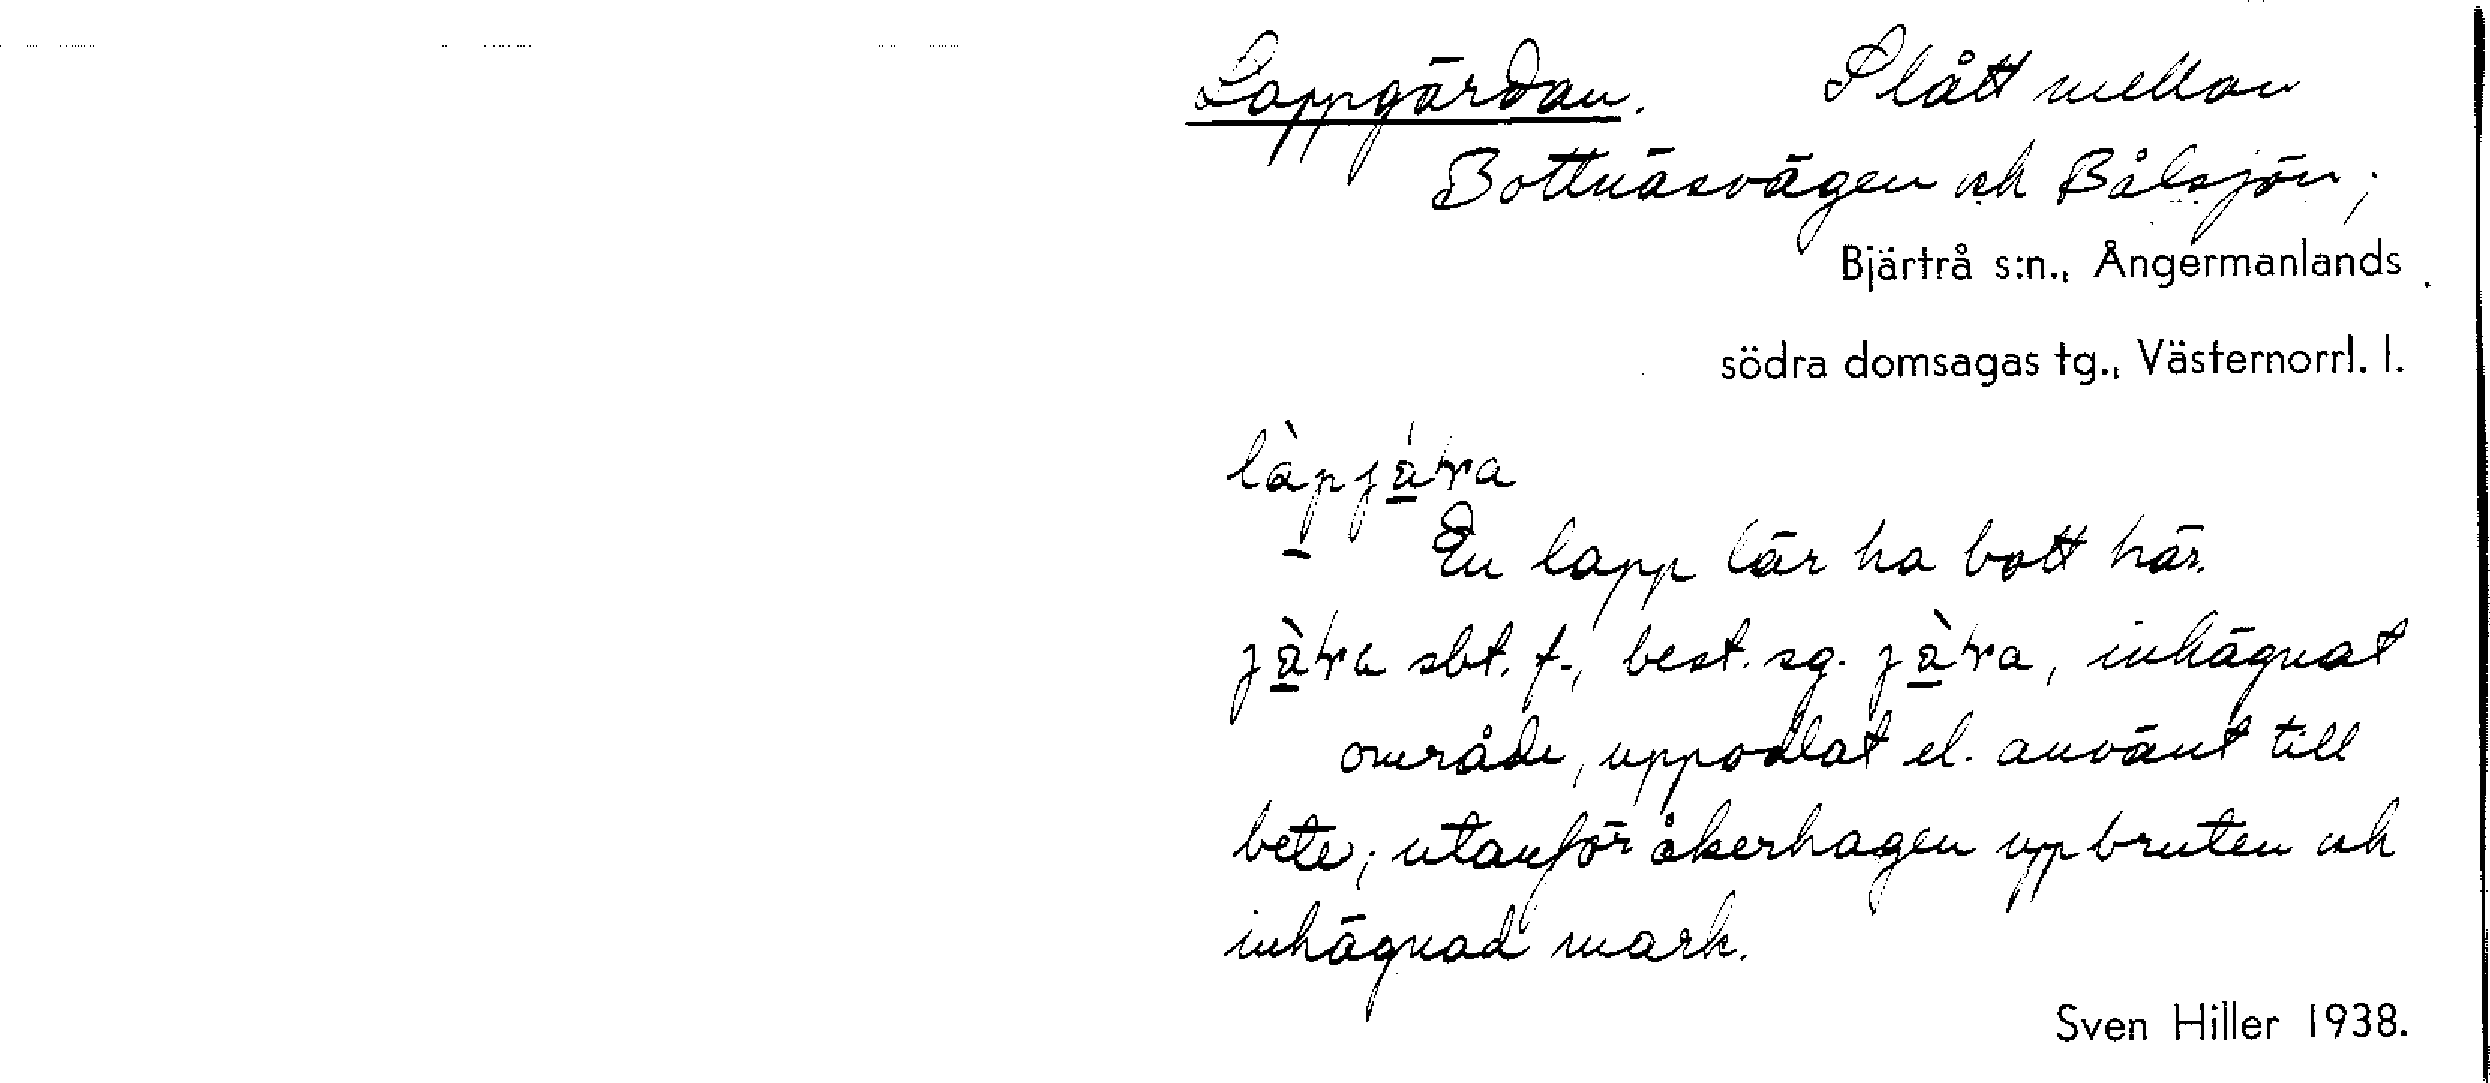 Lappgärdan. Slått mellan
Bottnäsvägen och Bålsjön;
Bjärtrå s:n., Ångermanlands
södra domsagas tg., Västernorrl. l.
En lapp lär ha bott här.
sbt. f., best. sg. inhägnat
område, uppodlat el. använt till
bete; utanför åkerhagen uppbruten och
inhägnad mark.
Sven Hiller 1938.